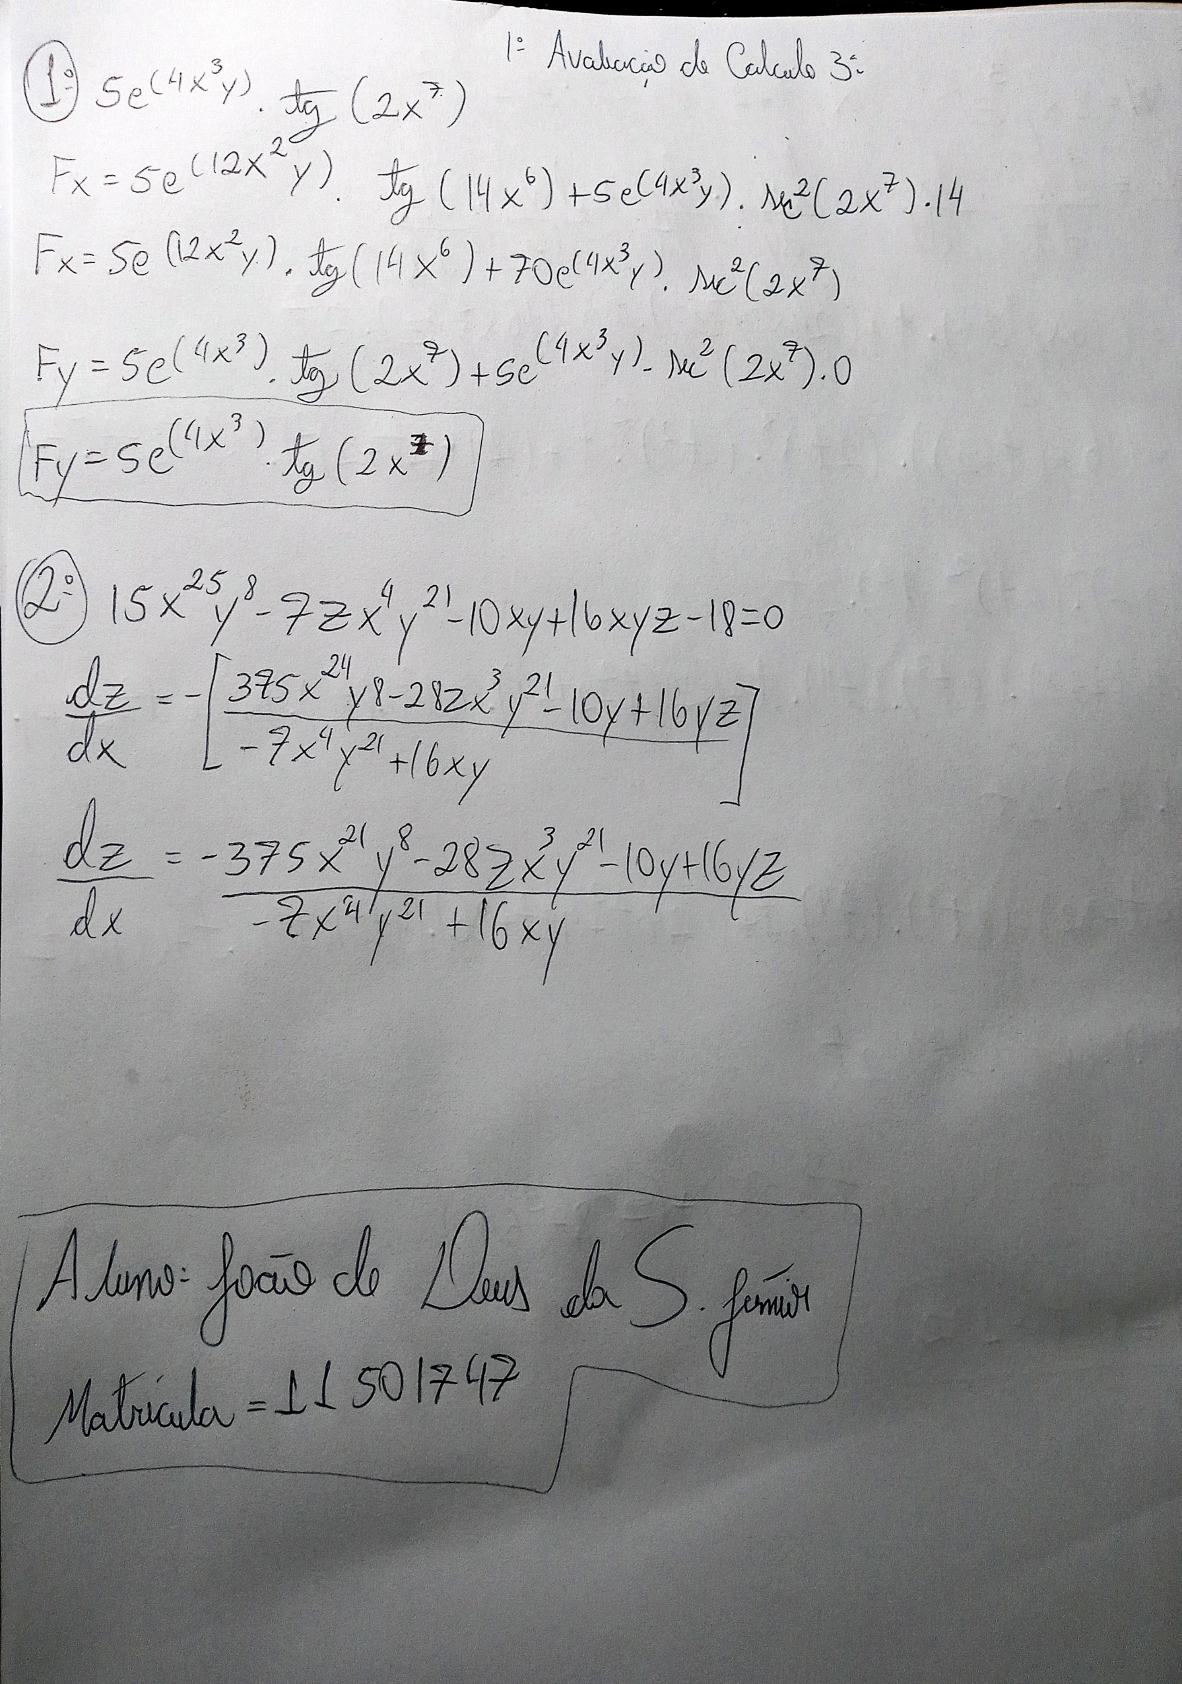 1º Avaliação de Calculo 3º
1º 5e^(4x^3y) . tg (2x^7)
Fx = 5e^(12x^2y) . tg (14x^6) + 5e^(4x^3y) . sec^2(2x^7) . 14
Fx = 5e^(12x^2y) . tg (14x^6) + 70e^(4x^3y) . sec^2(2x^7)
Fy = 5e^(4x^3) . tg (2x^7) + 5e^(4x^3y) . sec^2 (2x^7) . 0
Fy = 5e^(4x^3) . tg (2x^7)
2º 15x^25y^8 - 7zx^4y^21 - 10xy + 16xyz - 18 = 0
dz/dx = -[(375x^24y8 - 28zx^3y^21 - 10y + 16yz)/(-7x^4y^21 + 16xy)]
dz/dx = (-375x^21y^8 - 28zx^3y^21 - 10y + 16yz)/(-7x^4y^21 + 16xy)
Aluno: João de Deus da S. Júnior
Matrícula = 11501747